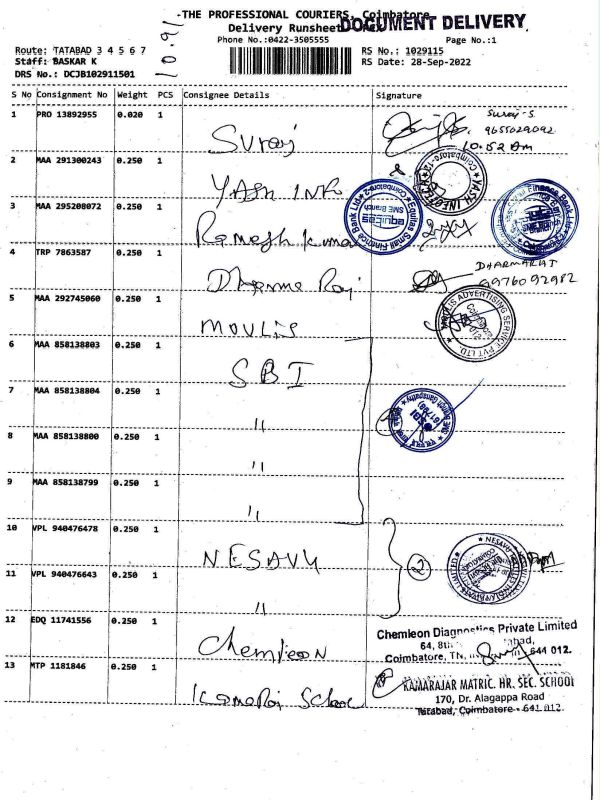 THE PROFESSIONAL COURIERS, Coimbatore
DOCUMENT DELIVERY
Delivery Runsheet
Phone No.:0422-3505555
Page No.:1
Route: TATABAD 3 4 5 6 7
RS No.: 1029115
Staff: BASKAR K
RS Date: 28-Sep-2022
DRS No.: DCJB102911501
S No Consignment No Weight PCS Consignee Details Signature
1 PRO 13892955 0.020 1 Suraj Suraj-S
10.52 Am
2 MAA 291300243 0.250 1 YASH INFO
3 MAA 295208072 0.250 1 Ramesh Kumar
4 TRP 7863587 0.250 1 Dharma Raj DHARMARAJ
9976092982
5 MAA 292745060 0.250 1 MOULIS
6 MAA 858138803 0.250 1 SBI
7 MAA 858138804 0.250 1 "
8 MAA 858138800 0.250 1 "
9 MAA 858138799 0.250 1 "
10 VPL 940476478 0.250 1 NESAVU
2
11 VPL 940476643 0.250 1 "
12 EDQ 11741556 0.250 1 Chemleon
Chemleon Diagnostics Private Limited
64, 8th
Coimbatore, TN, 641 012.
13 MTP 1181846 0.250 1 Kamaraj School
KAMARAJAR MATRIC. HR. SEC. SCHOOL
170, Dr. Alagappa Road
Tatabad, Coimbatore - 641 012.
Equitas Small Finance Bank Ltd
equitas
SME Branch
Coimbatore-2
YASH INFOTECH
Coimbatore-12
MOULIS ADVERTISING SERVICE PVT LTD.
SBI